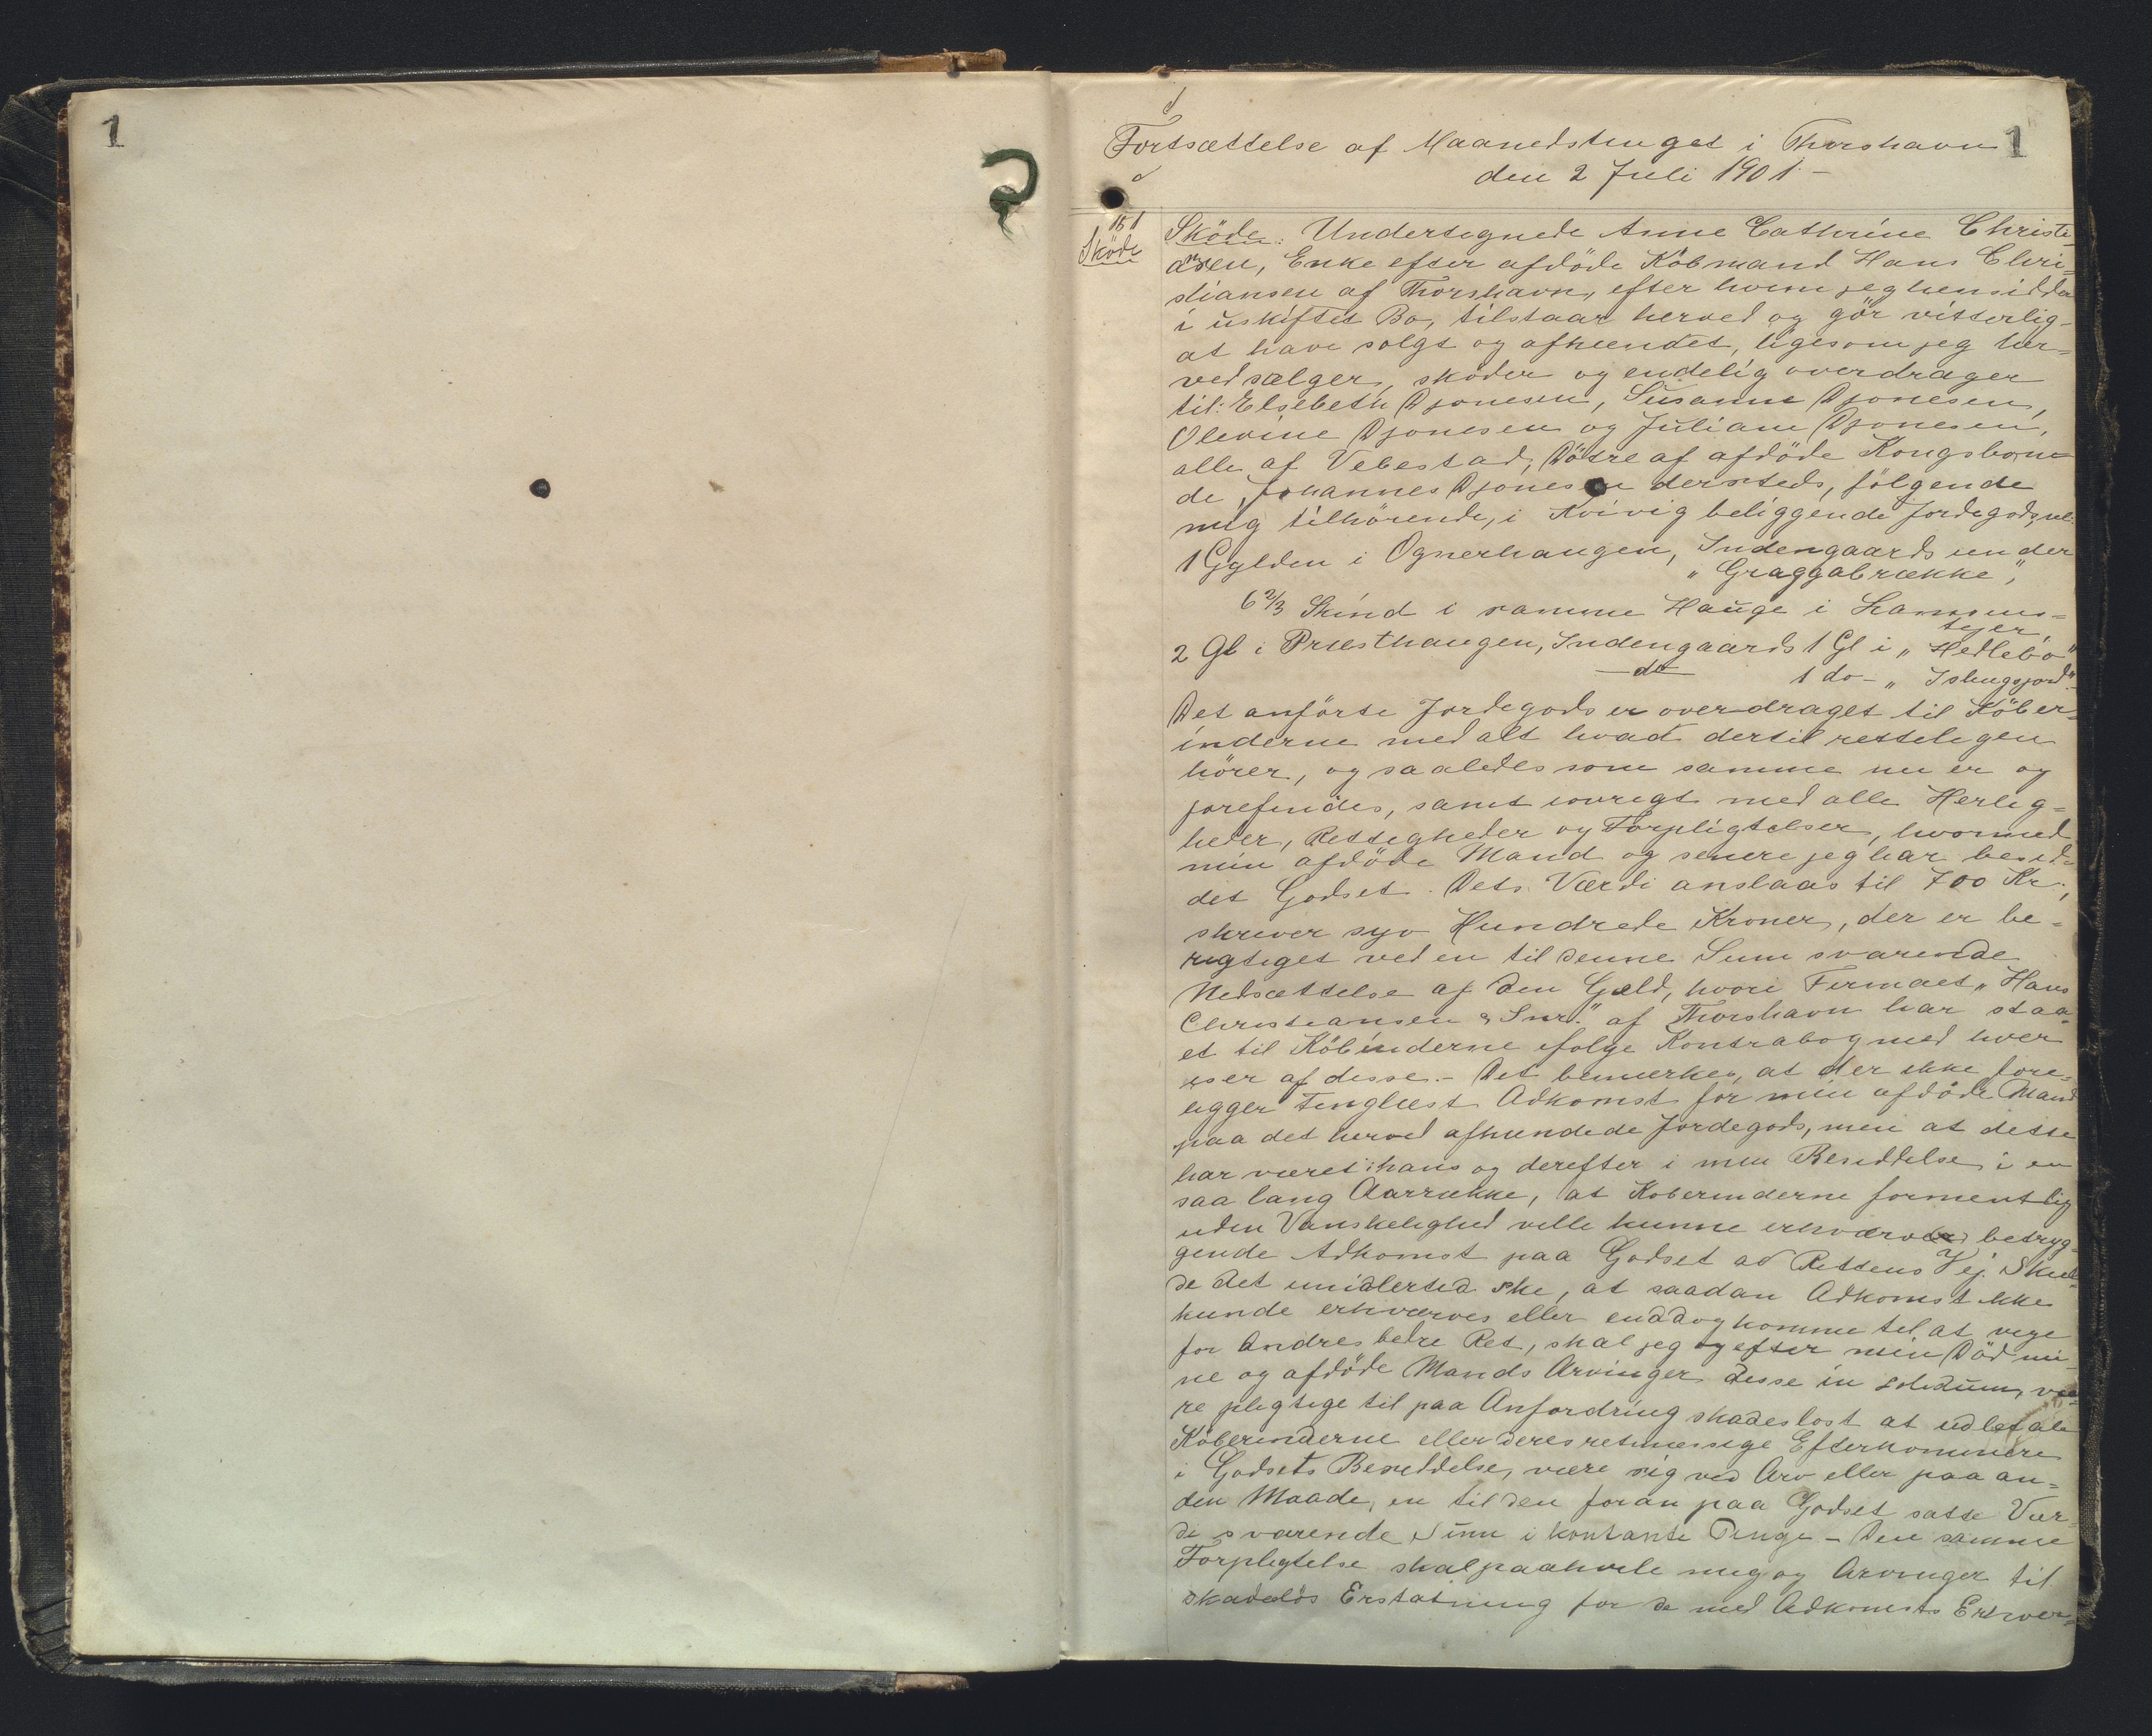 1
1
Fortsættelse af Maanedstinget i Thorshavn
den 2 Juli 1901.-
151
Sköde
Sköde: Undersegnede Anne Cathrine Christi-
ansen, Enke efter afdöde Köbmand Hans Chri-
stiansen af Thorshavn, efter hvem jeg hensidder
i uskiftet Bo, tilstaar herved og gör vitterlig-
at have solgt og afhændet, ligesom jeg her-
ved sælger, sköder og endelig overdrager
til: Elsebeth Djonesen, Susanne Djonesen,
Olevine Djonesen og Juliane Djonesen,
alle af Vebestad, Dötre af afdöde Kongsbon-
de, Johannes Djonesen dersteds, fölgende
mig tilhörende, i Kvivig beliggende Jordegods, nl:
1 Gylden i Ognerhaugen, Indengaards under
„Graggabrække",
6 2/3 Skind i samme Hauge i
2 Gl i Præsthaugen, Indengaards 1 Gl i „Hedlebö"
do 1 do - „
Det anförte Jordegods er overdraget til Köber-
inderne med alt hvad dertil retteligen
hörer, og saaledes som samme nu er og
forefindes, samt iövrigt med alle Herlig=
heder, Rettigheder og Forpligtelser, hvormed
min afdöde Mand og senere jeg har besid-
det Godset. Dets Værdi anslaas til 700 Kr.,
skriver syv Hundrede Kroner, der er be-
rigtiget ved en til denne Sum svarende
Nedsættelse af den Gæld, hvori Firmaet „Hans
Christiansen & Snr." af Thorshavn har staa-
et til Köbinderne ifölge Kontrabog med hver
især af disse.- Det bemærkes, at der ikke fore-
ligger tinglæst Adkomst for min afdöde Mand
paa det herved afhændede Jordegods, men at dette
har været i hans og derefter i min Besiddelse i en
saa lang Aarrække, at Köberinderne formentlig
uden Vanskelighed ville kunne erhverve betryg-
gende Adkomst paa Godset ad Rettens Vej. Skul-
de det imidlertid ske, at saadan Adkomst ikke
kunde erhverves eller enddog komme til at vige
for Andres bedre Ret, skal jeg og efter min Död mi-
ne og afdöde Mands Arvinger, disse in solidum, væ-
re pligtige til paa Anfordring skadeslöst at udbetale
Köberinderne eller deres retmæssige Efterkommere
i Godsets Besiddelse, være sig ved Arv eller paa an-
den Maade, en til den foran paa Godset satte Vær-
di svarende Sum i kontante Penge - Den samme
Forpligtelse skal paahvile mig og Arvinger til
skadelös Erstatning for de med Adkomsts Erhver-